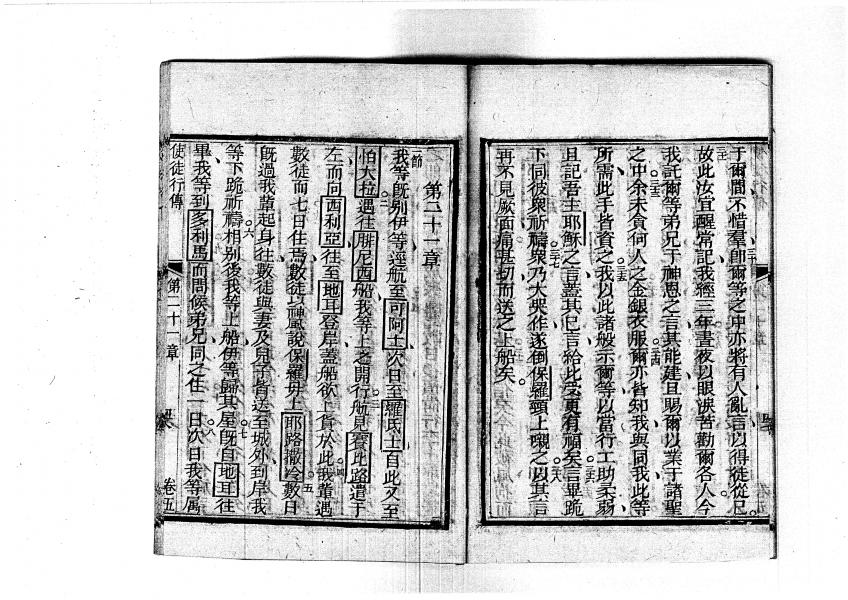 于爾間不惜羣卽爾等之中亦將有人亂言以得徒從己
故此汝宜醒常記我經三年晝夜以眼淚苦勸爾各人今
我託爾等弟兄于神恩之言其能建且賜爾以業于諸聖
之中余未貪何人之金銀衣服爾亦皆知我與同我此等
所需此手皆資之我以此諸般示爾等以當行工助柔弱
且記吾主耶穌之言蓋其已言給此受更有福矣言畢跪
下同彼衆祈禱衆乃大哭作遂倒保羅頸上嚫之以其言
再不見厥面痛甚切而送之上船矣
第二十一章
一節
我等旣別伊等逕航至可阿士次日至羅氐士自此又至
怕大拉遇往腓尼西船我等上之開行航見賽比路遺于
左而向西利亞往至地耳登岸蓋船欲上貨於此我輩遇
數徒而七日住焉數徒以神風說保羅毋上耶路撒冷數日
旣過我輩起身往數徒與妻及兒子皆送至城外到岸我
等下跪祈禱相別後我等上船伊等歸其屋旣自地耳往
畢我等到多利馬而問候弟兄同之住一日次日我等屬
使徒行傳
第二十一章
卷五